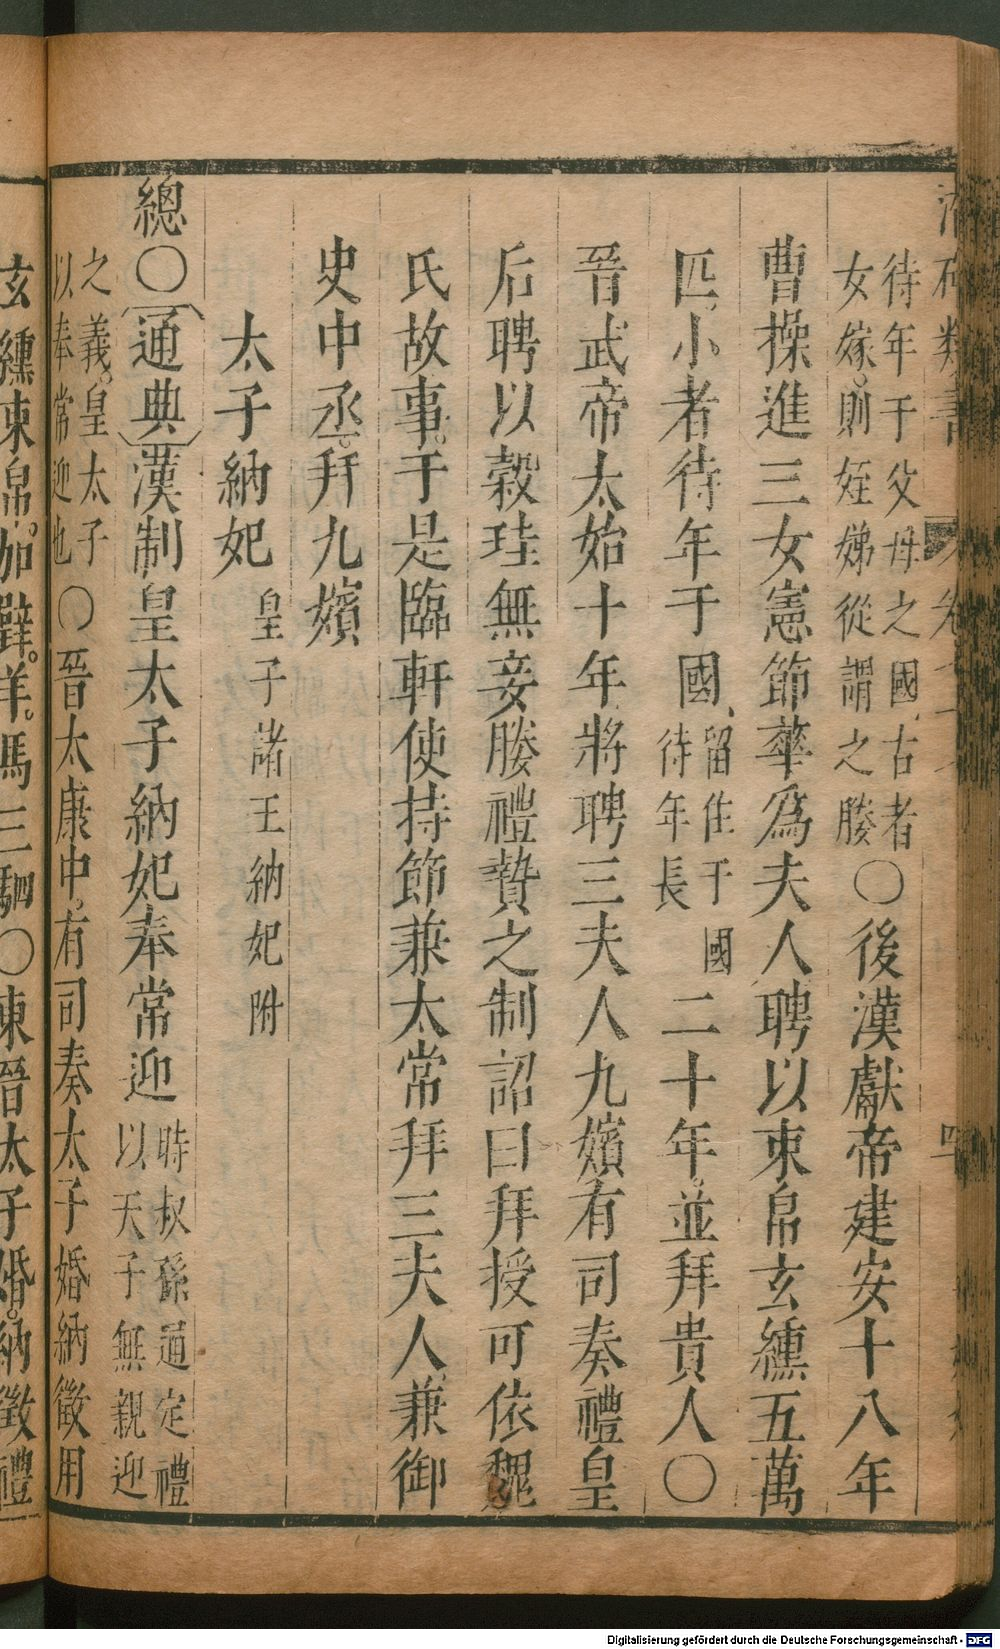 待年于父母之國古者
女嫁則姪娣從謂之媵
〇後漢獻帝建安十八年
曹操進三女憲節華爲夫人聘以束帛玄纁五萬
匹小者待年于國
留住于國
待年長
二十年並拜貴人〇
晉武帝太始十年將聘三夫人九嬪有司奏禮皇
后聘以穀珪無妾媵禮贄之制詔曰拜授可依魏
氏故事于是臨軒使持節兼太常拜三夫人兼御
史中丞拜九嬪
太子納妃
皇子諸王納妃附
總〇通典漢制皇太子納妃奉常迎
時叔孫通定禮
以天子無親迎
之義皇太子
以奉常迎也
〇晉太康中有司奏太子婚納徵用
玄纁束帛加璧羊馬三駟〇東晉太子婚納徵禮
Digitalisierung gefördert durch die Deutsche Forschungsgemeinschaft - DFG